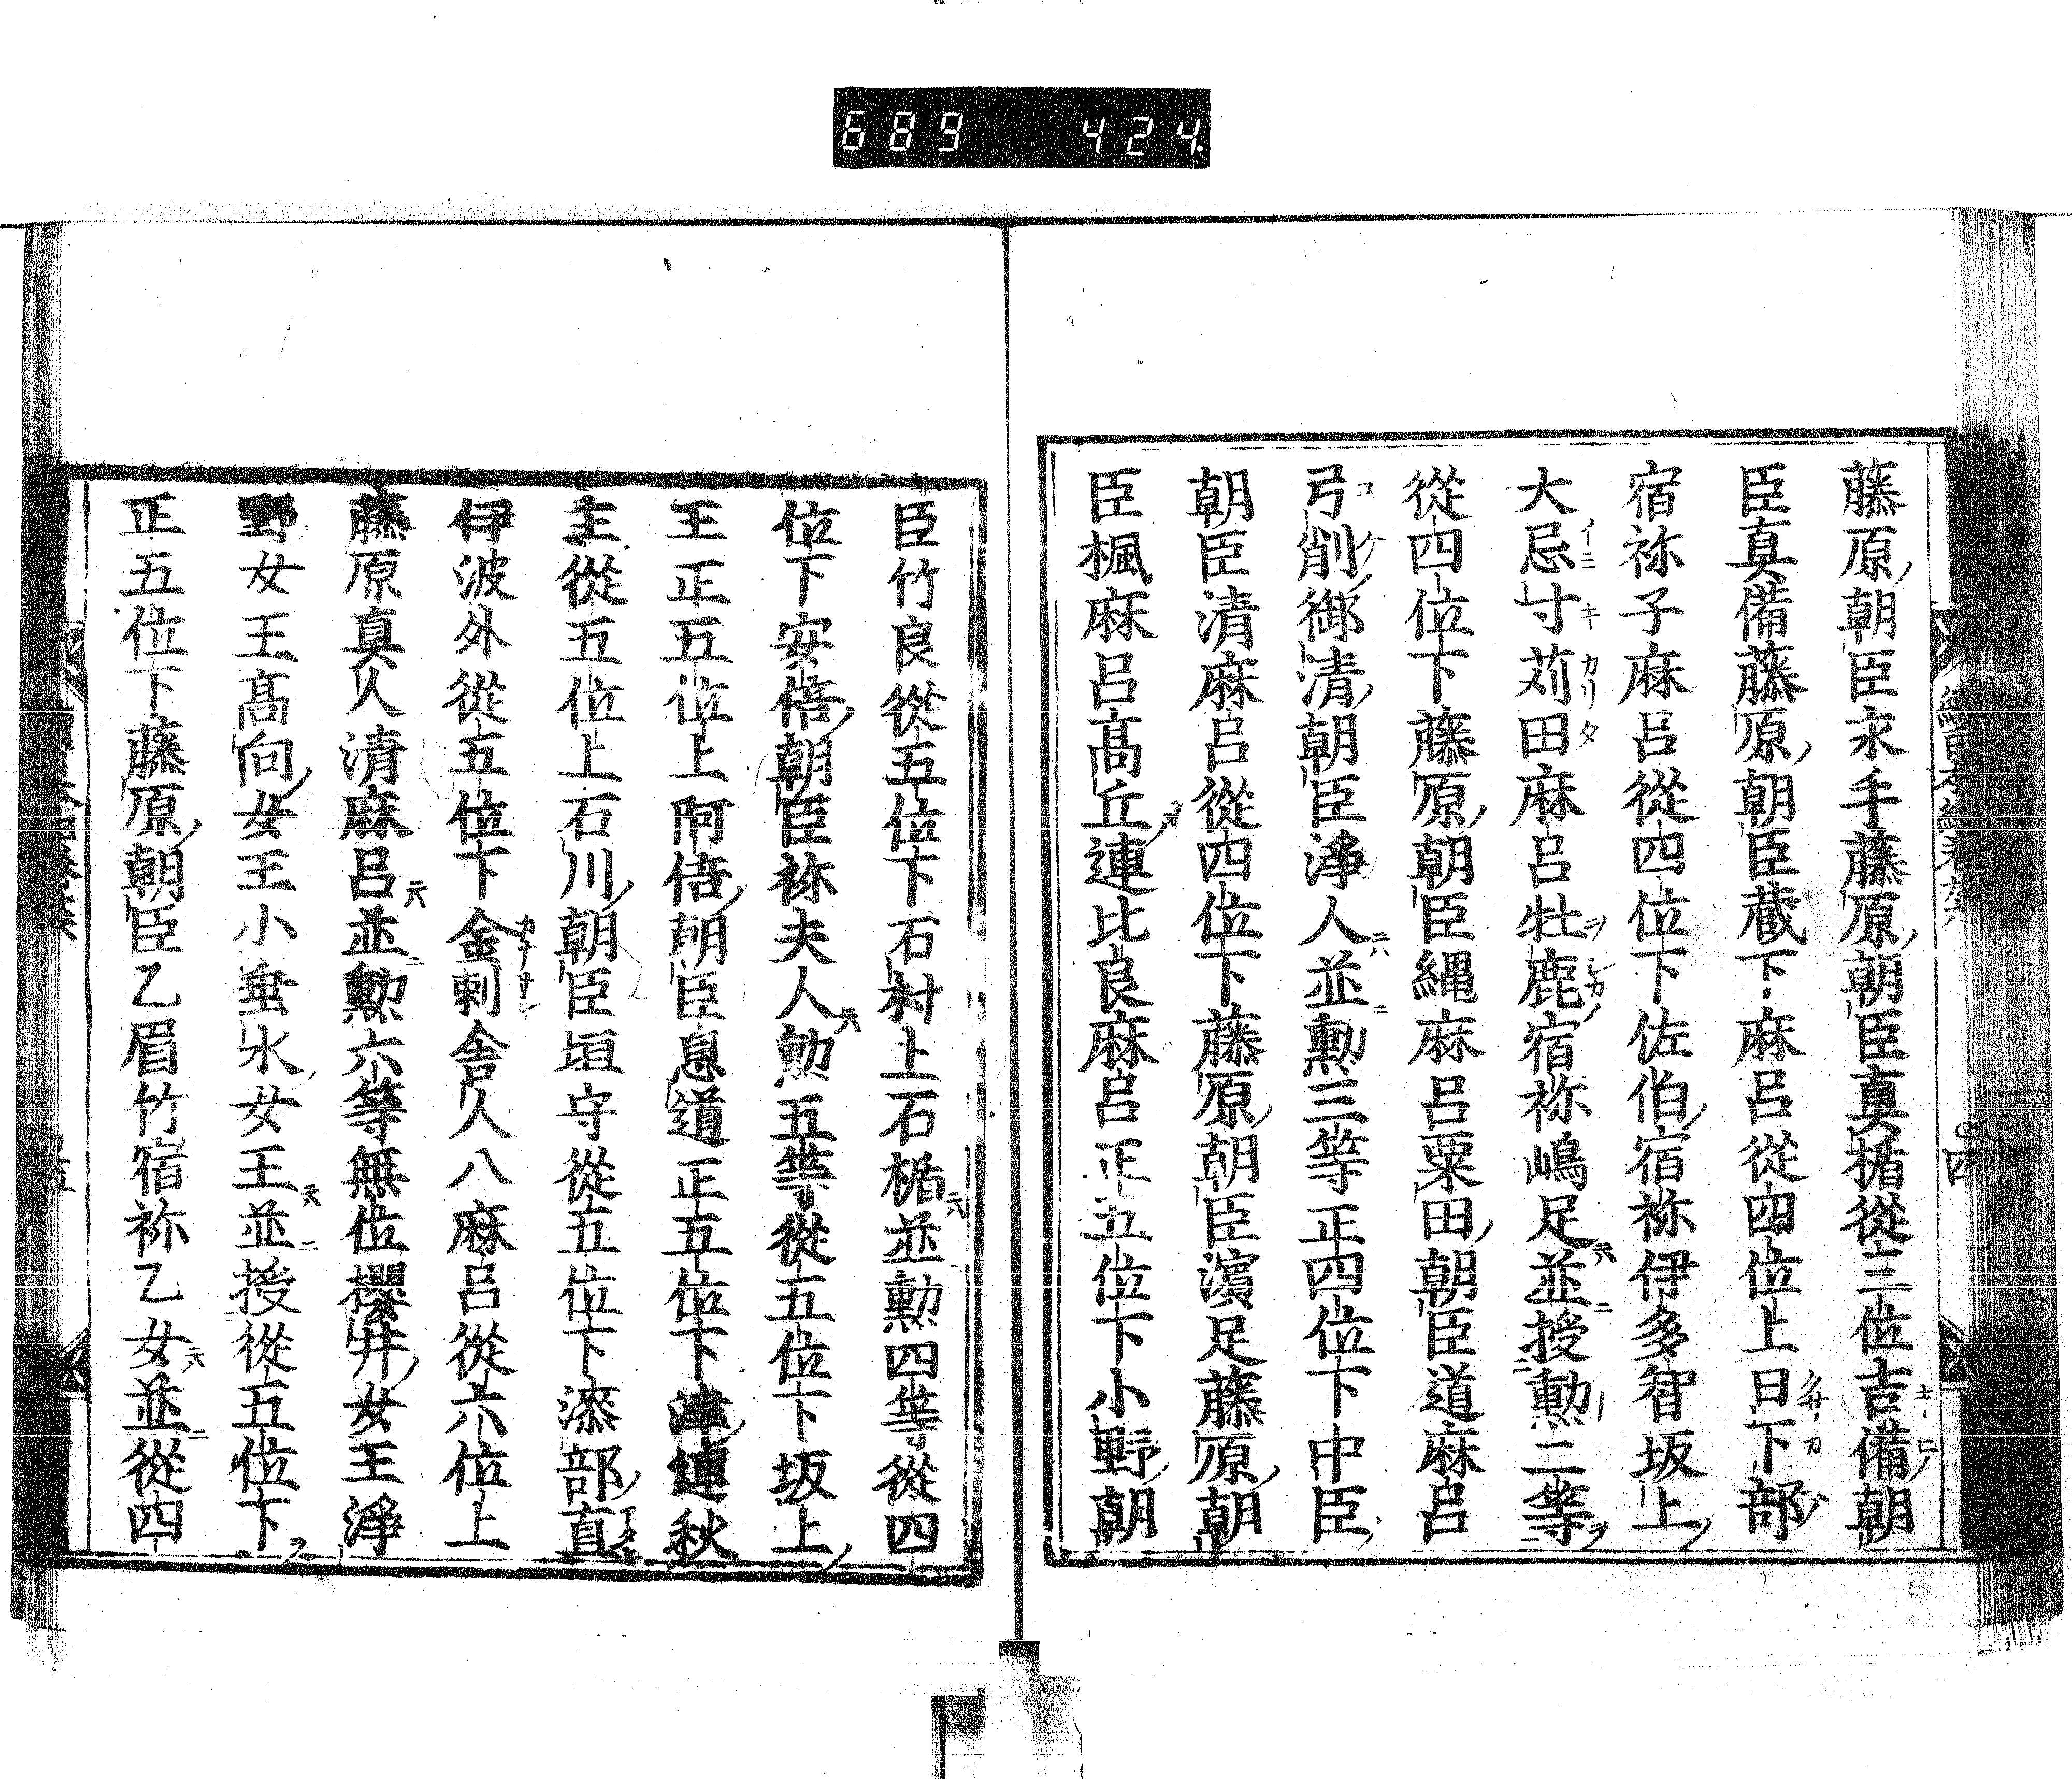 689 424.
藤原朝臣永手藤原朝臣真楯從三位吉備朝
臣真備藤原朝臣蔵下麻呂從四位上日下部
宿祢子麻呂從四位下佐伯宿祢伊多智坂上
大忌寸苅田麻呂牡鹿宿祢嶋足並授勲二等
從四位下藤原朝臣縄麻呂粟田朝臣道麻呂
弓削御清朝臣淨人並勲三等正四位下中臣
朝臣清麻呂從四位下藤原朝臣濱足藤原朝
臣楓麻呂高丘連比良麻呂正五位下小野朝
臣竹良從五位下石村上石楯並勲四等從四
位下安倍朝臣祢夫人勲五等從五位下坂上
王正五位上阿倍朝臣息道正五位下津連秋
主從五位上石川朝臣垣守從五位下漆部直
伊波外從五位下金刺舎人八麻呂從六位上
藤原真人清麻呂並勲六等無位櫻井女王淨
野女王高向女王小垂水女王並授從五位下
正五位下藤原朝臣乙眉竹宿祢乙女並從四